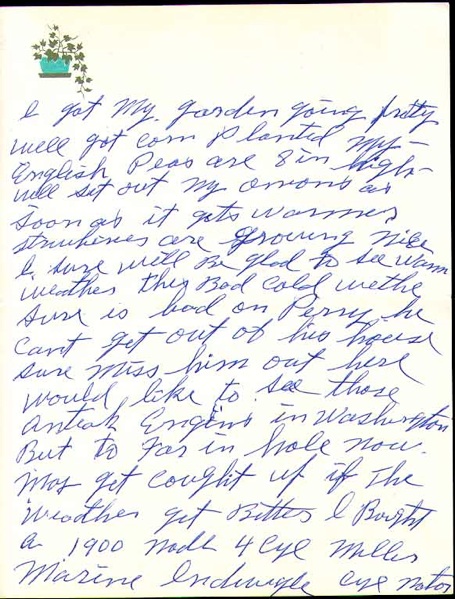 I got my garden going pretty
well got corn planted my
English Peas are 8 in high
will set out my onions as
soon as it gets warmer
are growing nice
I sure will Be glad to see warm
weather this Bad cold wethe
sure is bad on Perry he
cant get out of his house
sure miss him out here
would like to see those
Antiak Engins in Washington
But to Far in hole now.
may get cought up if the
weather get Better I Bought
a 1900 Modl 4 Cyl Miller
Marine cyl motor